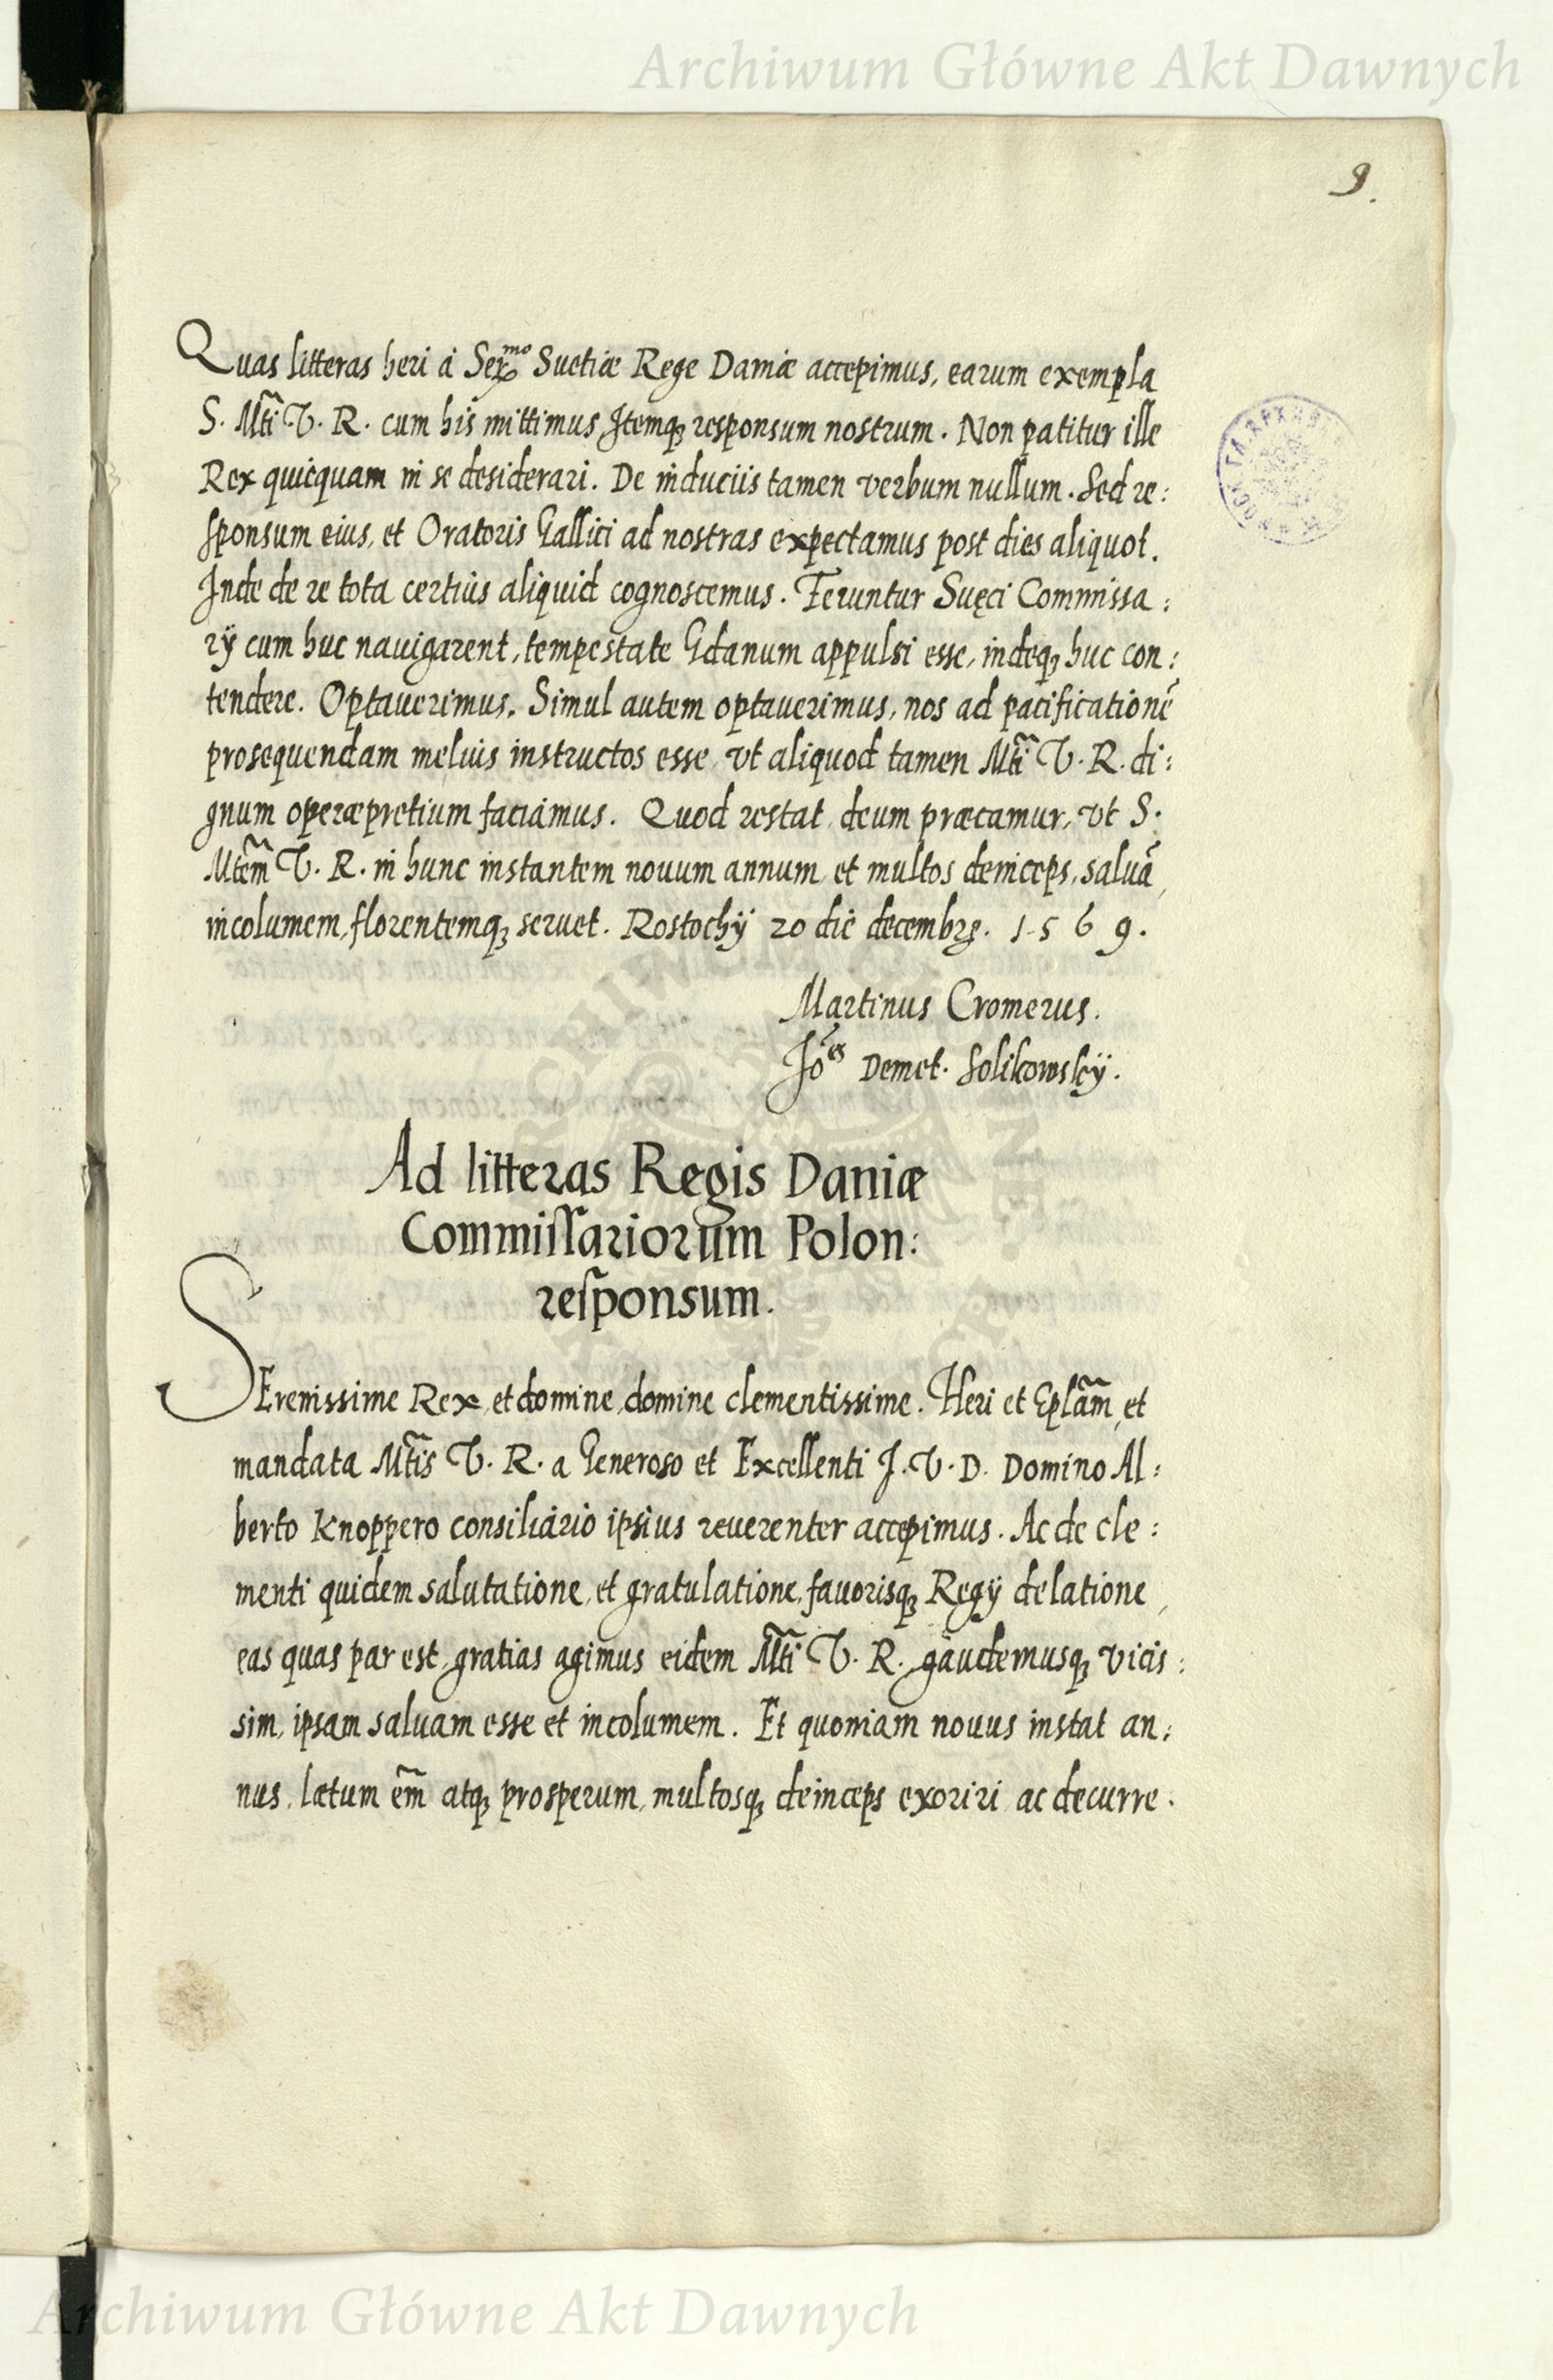 Archiwum Główne Akt Dawnych
9.
Quas litteras heri á Ser.mo Suetiæ Rege Daniæ accepimus, earum exempla
S. Mti V. R. cum his mittimus, Itemq; responsum nostrum. Non patitur ille
Rex quicquam in se desiderari. De induciis tamen verbum nullum. Sed re:
sponsum eius, et Oratoris Gallici ad nostras expectamus post dies aliquot.
Inde de re tota certius aliquid cognoscemus. Feruntur Suęci Commissa:
rÿ cum huc nauigarent, tempestate Gdanum appulsi esse, indeq; huc con:
tendere. Optauerimus. Simul autem optauerimus, nos ad pacificationē
prosequendam melius instructos esse, vt aliquod tamen Mti V. R. di:
gnum operæpretium faciamus. Quod restat, deum præcamur, vt S.
Mtem V. R. in hunc instantem nouum annum, et multos deinceps, saluā,
incolumem, florentemq; seruet. Rostochÿ 20 die decembr. 1569.
Martinus Cromerus.
Joes Demet. Solikowskÿ.
Ad litteras Regis Daniæ
Commissariorum Polon:
responsum.
SErenissime Rex, et domine, domine clementissime. Heri et Eplam, et
mandata Mtis V. R. a Generoso et Excellenti J. V. D. Domino Al:
berto Knoppero consiliario ipsius reuerenter accepimus. Ac de cle:
menti quidem salutatione, et gratulatione, fauorisq; Regÿ delatione,
eas quas par est, gratias agimus eidem Mti V. R. gaudemusq; vicis:
sim, ipsam saluam esse et incolumem. Et quoniam nouus instat an:
nus, lætum em̄ atq; prosperum, multosq; deinceps exoriri ac decurre.
Archiwum Główne Akt Dawnych